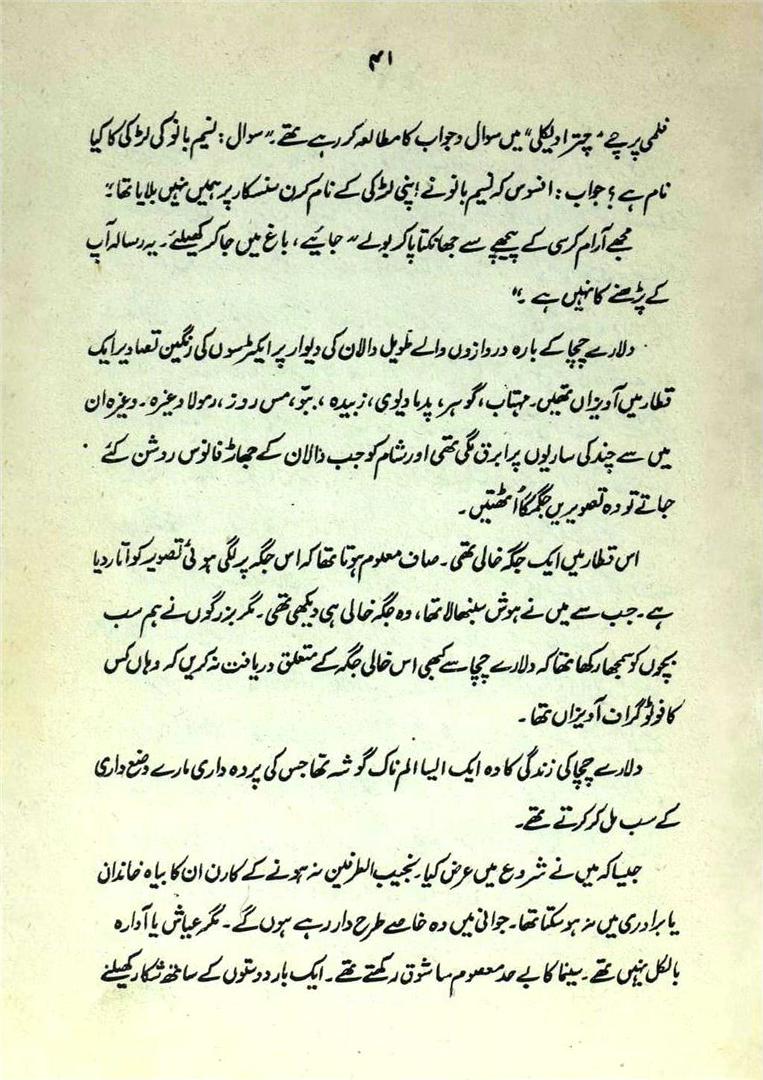 ۴۱
فلمی پرچے "چتراویکلی" میں سوال و جواب کا مطالعہ کر رہے تھے۔ "سوال: نسیم بانو کی لڑکی کا کیا
نام ہے؟ جواب: افسوس کہ نسیم بانو نے اپنی لڑکی کے نام کرن سنسکار پر ہمیں نہیں بلایا تھا"۔
مجھے آرام کرسی کے پیچھے سے جھانکتا پا کر بولے "جائیے، باغ میں جا کر کھیلئے۔ یہ رسالہ آپ
کے پڑھنے کا نہیں ہے۔"
دلارے چچا کے بارہ دروازوں والے طویل دالان کی دیوار پر ایکٹرسوں کی رنگین تصاویر ایک
قطار میں آویزاں تھیں۔ مہتاب، گوہر، پدما دیوی، زبیدہ، ببّو، مس روز، رمولا وغیرہ۔ وغیرہ ان
میں سے چند کی ساریوں پر ابرق لگی تھی اور شام کو جب دالان کے جھاڑ فانوس روشن کئے
جاتے تو وہ تصویریں جگمگا اُٹھتیں۔
اس قطار میں ایک جگہ خالی تھی۔ صاف معلوم ہوتا تھا کہ اس جگہ پر لگی ہوئی تصویر کو اتار دیا
ہے۔ جب سے میں نے ہوش سنبھالا تھا، وہ جگہ خالی ہی دیکھی تھی۔ مگر بزرگوں نے ہم سب
بچوں کو سمجھا رکھا تھا کہ دلارے چچا سے کبھی اس خالی جگہ کے متعلق دریافت نہ کریں کہ وہاں کس
کا فوٹو گراف آویزاں تھا۔
دلارے چچا کی زندگی کا وہ ایک ایسا الم ناک گوشہ تھا جس کی پردہ داری مارے وضع داری
کے سب مل کر کرتے تھے۔
جیسا کہ میں نے شروع میں عرض کیا۔ نجیب الطرفین نہ ہونے کے کارن ان کا بیاہ خاندان
یا برادری میں نہ ہو سکتا تھا۔ جوانی میں وہ خاصے طرح دار رہے ہوں گے۔ مگر عیاش یا آوارہ
بالکل نہیں تھے۔ سینما کا بے حد معصوم سا شوق رکھتے تھے۔ ایک بار دوستوں کے ساتھ شکار کھیلنے